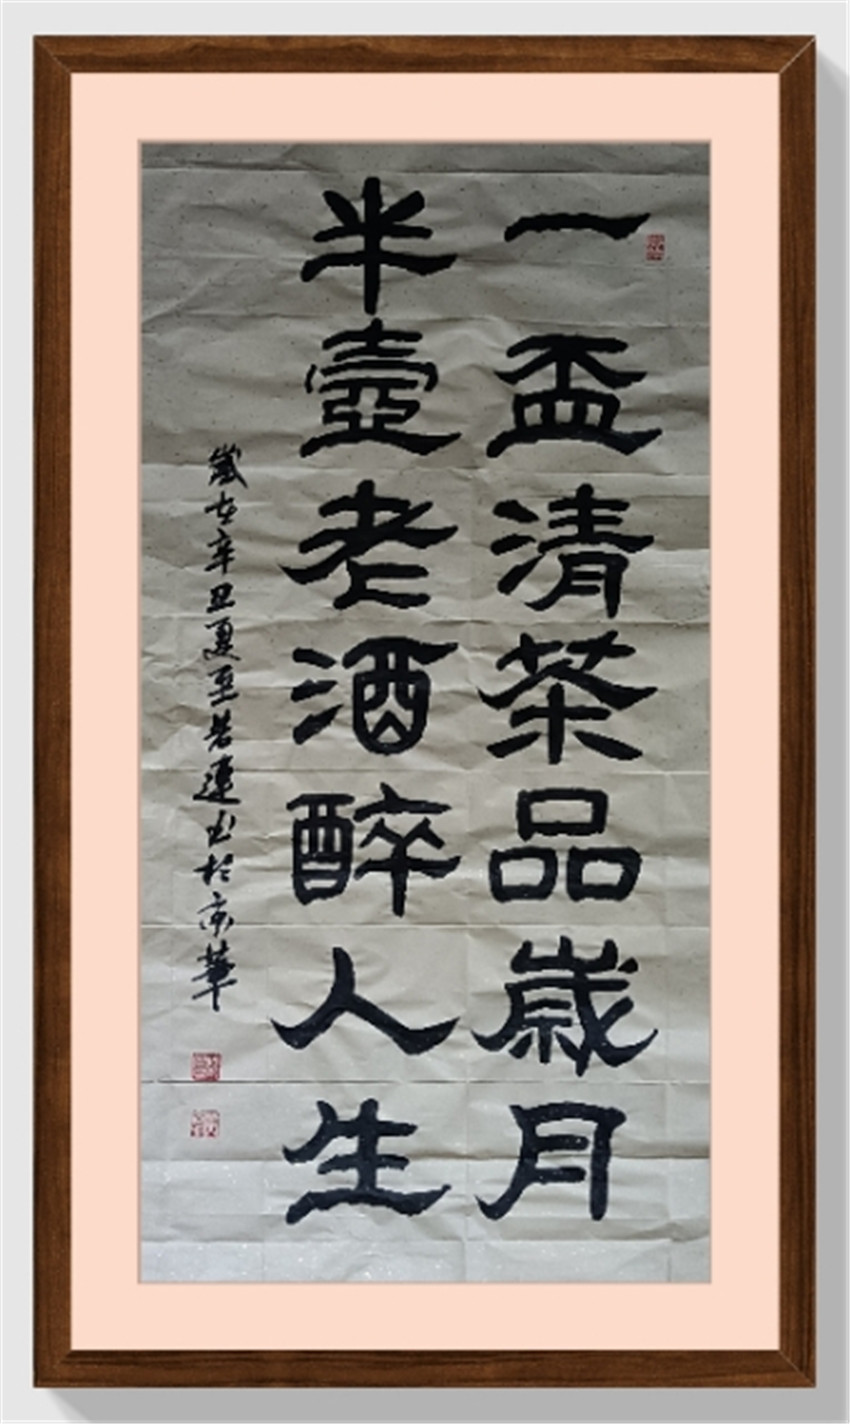 一盃清茶品歲月
半壺老酒醉人生
歲在辛丑夏至若連书於京華